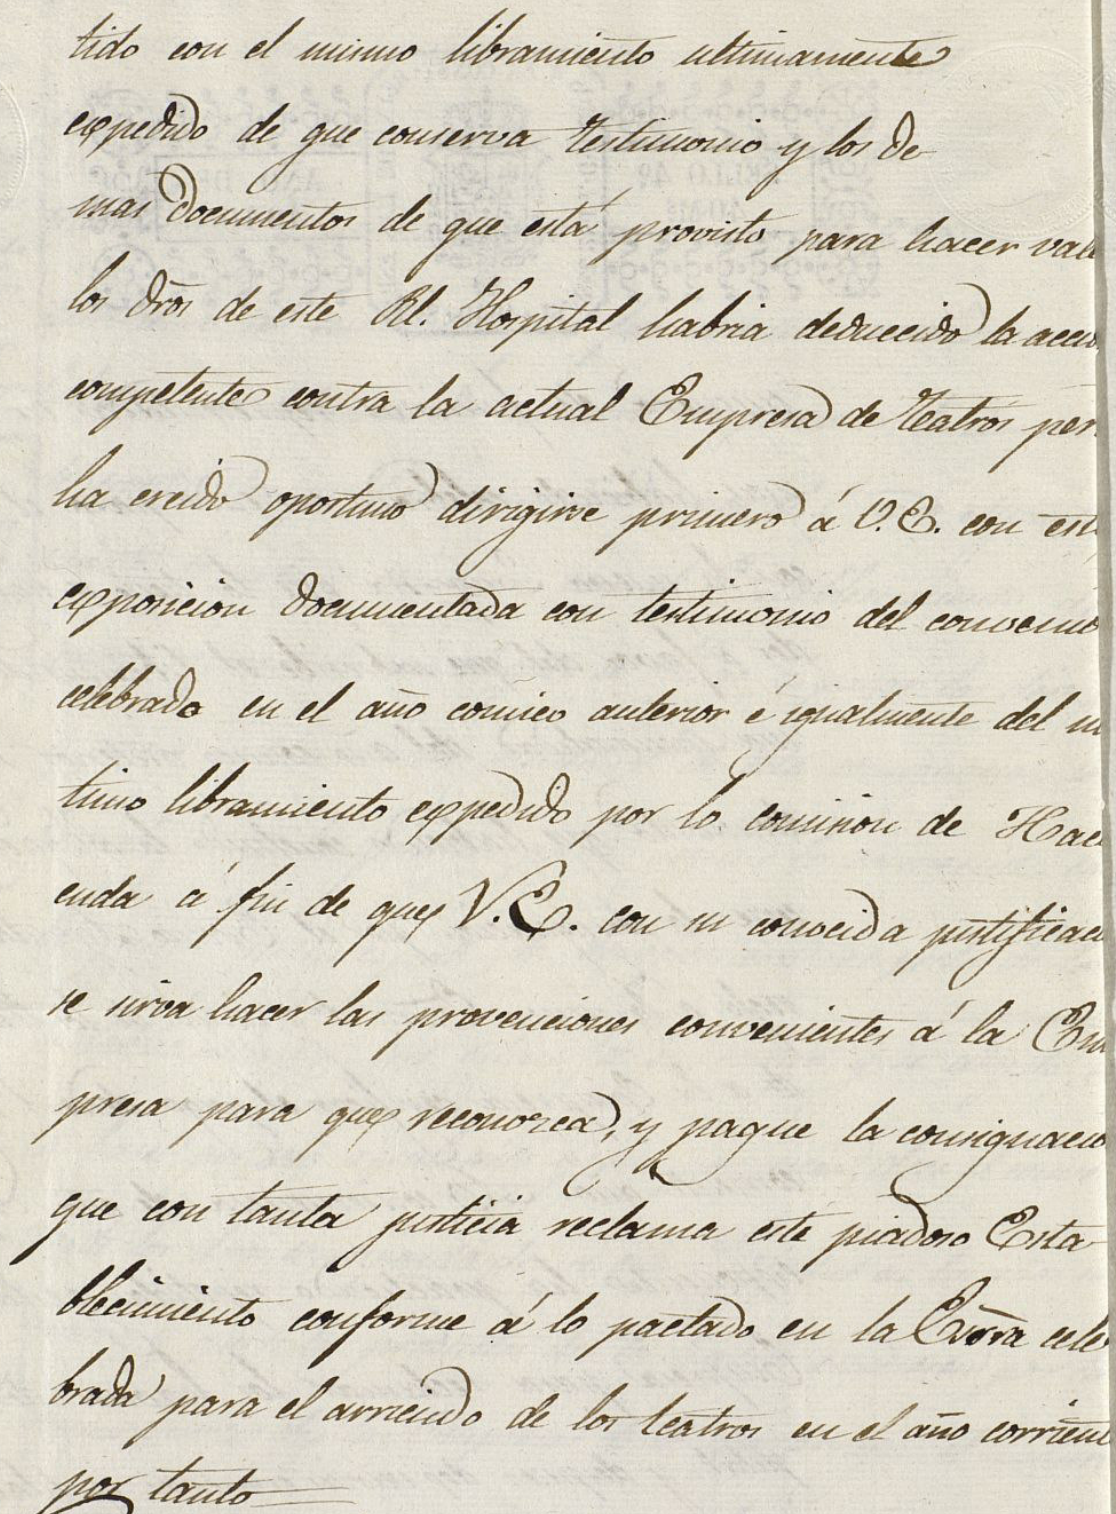 tido con el mismo libramiento ultimamente
expedido de que conserva testimonio y los de
mas documentos de que está provisto para hacer vale
los dr̃os de este Rl. Hospital habria deduccido la accio
competente contra la actual Empresa de teatros per
ha creido oportuno dirigirse primero á V.E. con est
exposicion documentada con testimonio del convenio
celebrado en el año comico anterior é igualmente del ul
timo libramiento expedido por lo comision de Haci
enda á fin de que V.E. con su conocida justificaci
se sirva hacer las provenciones convenientes á la Em
presa para que reconozca, y pague la consignacio
que con tanta justicia reclama este piadoso Esta
blecimiento conforme á lo pactado en la Esr̃ra cele
brada para el arriendo de los teatros en el año corrient
por tanto